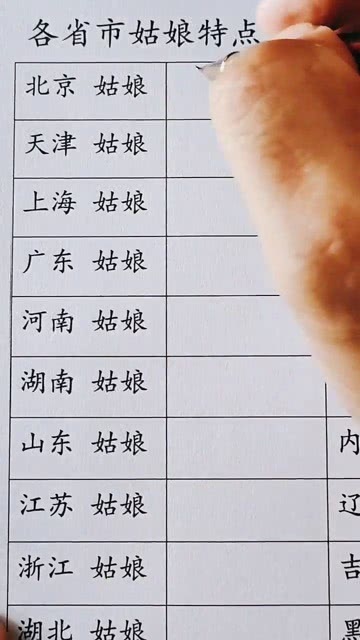 各省市姑娘特点
北京 姑娘
天津 姑娘
上海 姑娘
广东 姑娘
河南 姑娘
湖南 姑娘
山东 姑娘 内
江苏 姑娘 辽
浙江 姑娘 吉
湖北 姑娘 黑